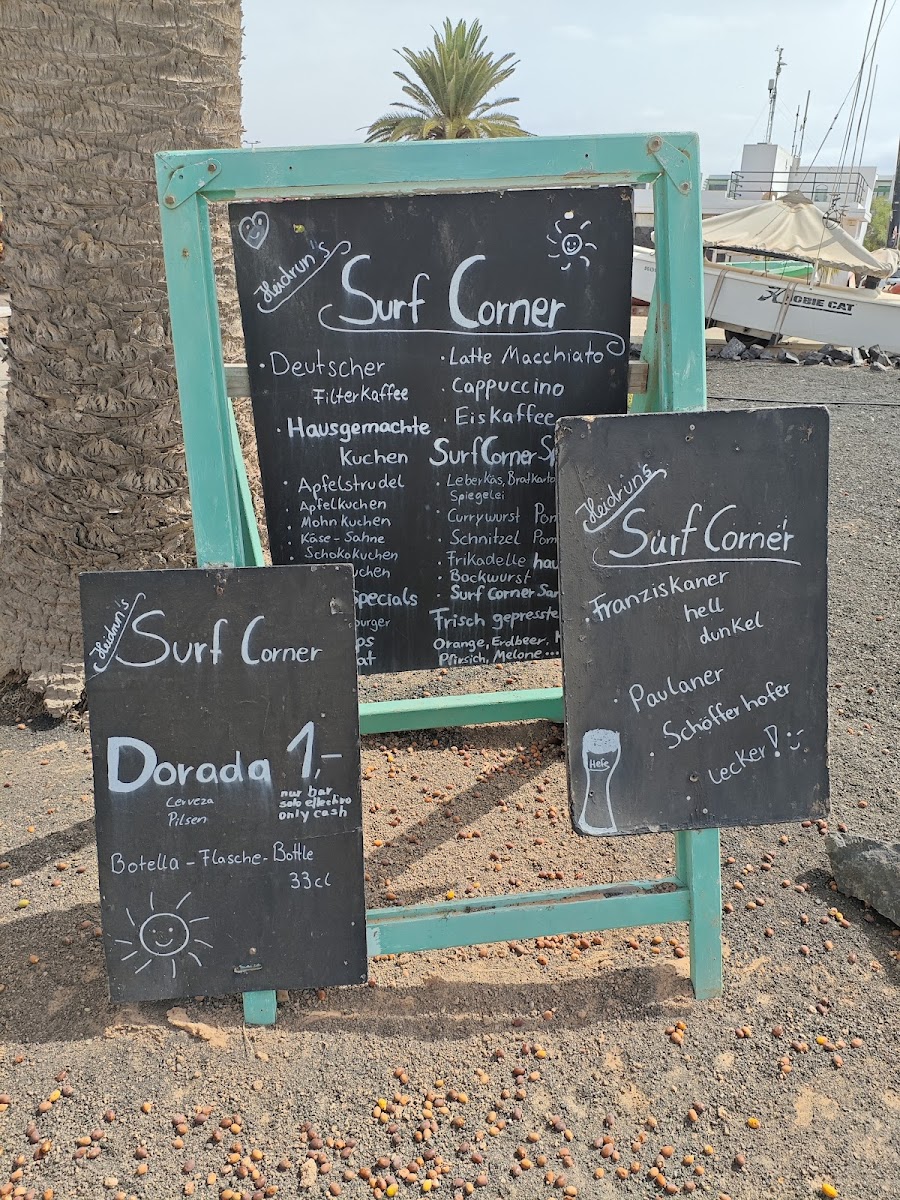 Heidrun's
Surf Corner
· Deutscher
Filterkaffee
· Hausgemachte
Kuchen
· Apfelstrudel
· Apfelkuchen
· Mohnkuchen
· Käse-Sahne
· Schokokuchen
· Latte Macchiato
· Cappuccino
· Eiskaffee
Surf Corner
· Leberkäs,
Spiegelei
· Currywurst
· Schnitzel
· Frikadelle
· Bockwurst
· Surf Corner
Frisch
Orange, Erdbeer,
Pfirsich, Melone...
Heidrun's
Surf Corner
Dorada 1,-
Cerveza
Pilsen
nur bar
solo efectivo
only cash
Botella - Flasche - Bottle
33cl
Heidrun's
Surf Corner
· Franziskaner
hell
dunkel
· Paulaner
· Schöfferhofer
Lecker!
Hefe
HOBIE CAT